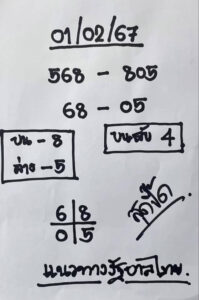 01/02/67
568 - 805
68 - 05
บน - 8
ล่าง - 5
บนลับ 4
6 8
0 5
แนวทางรัฐบาลไทย.